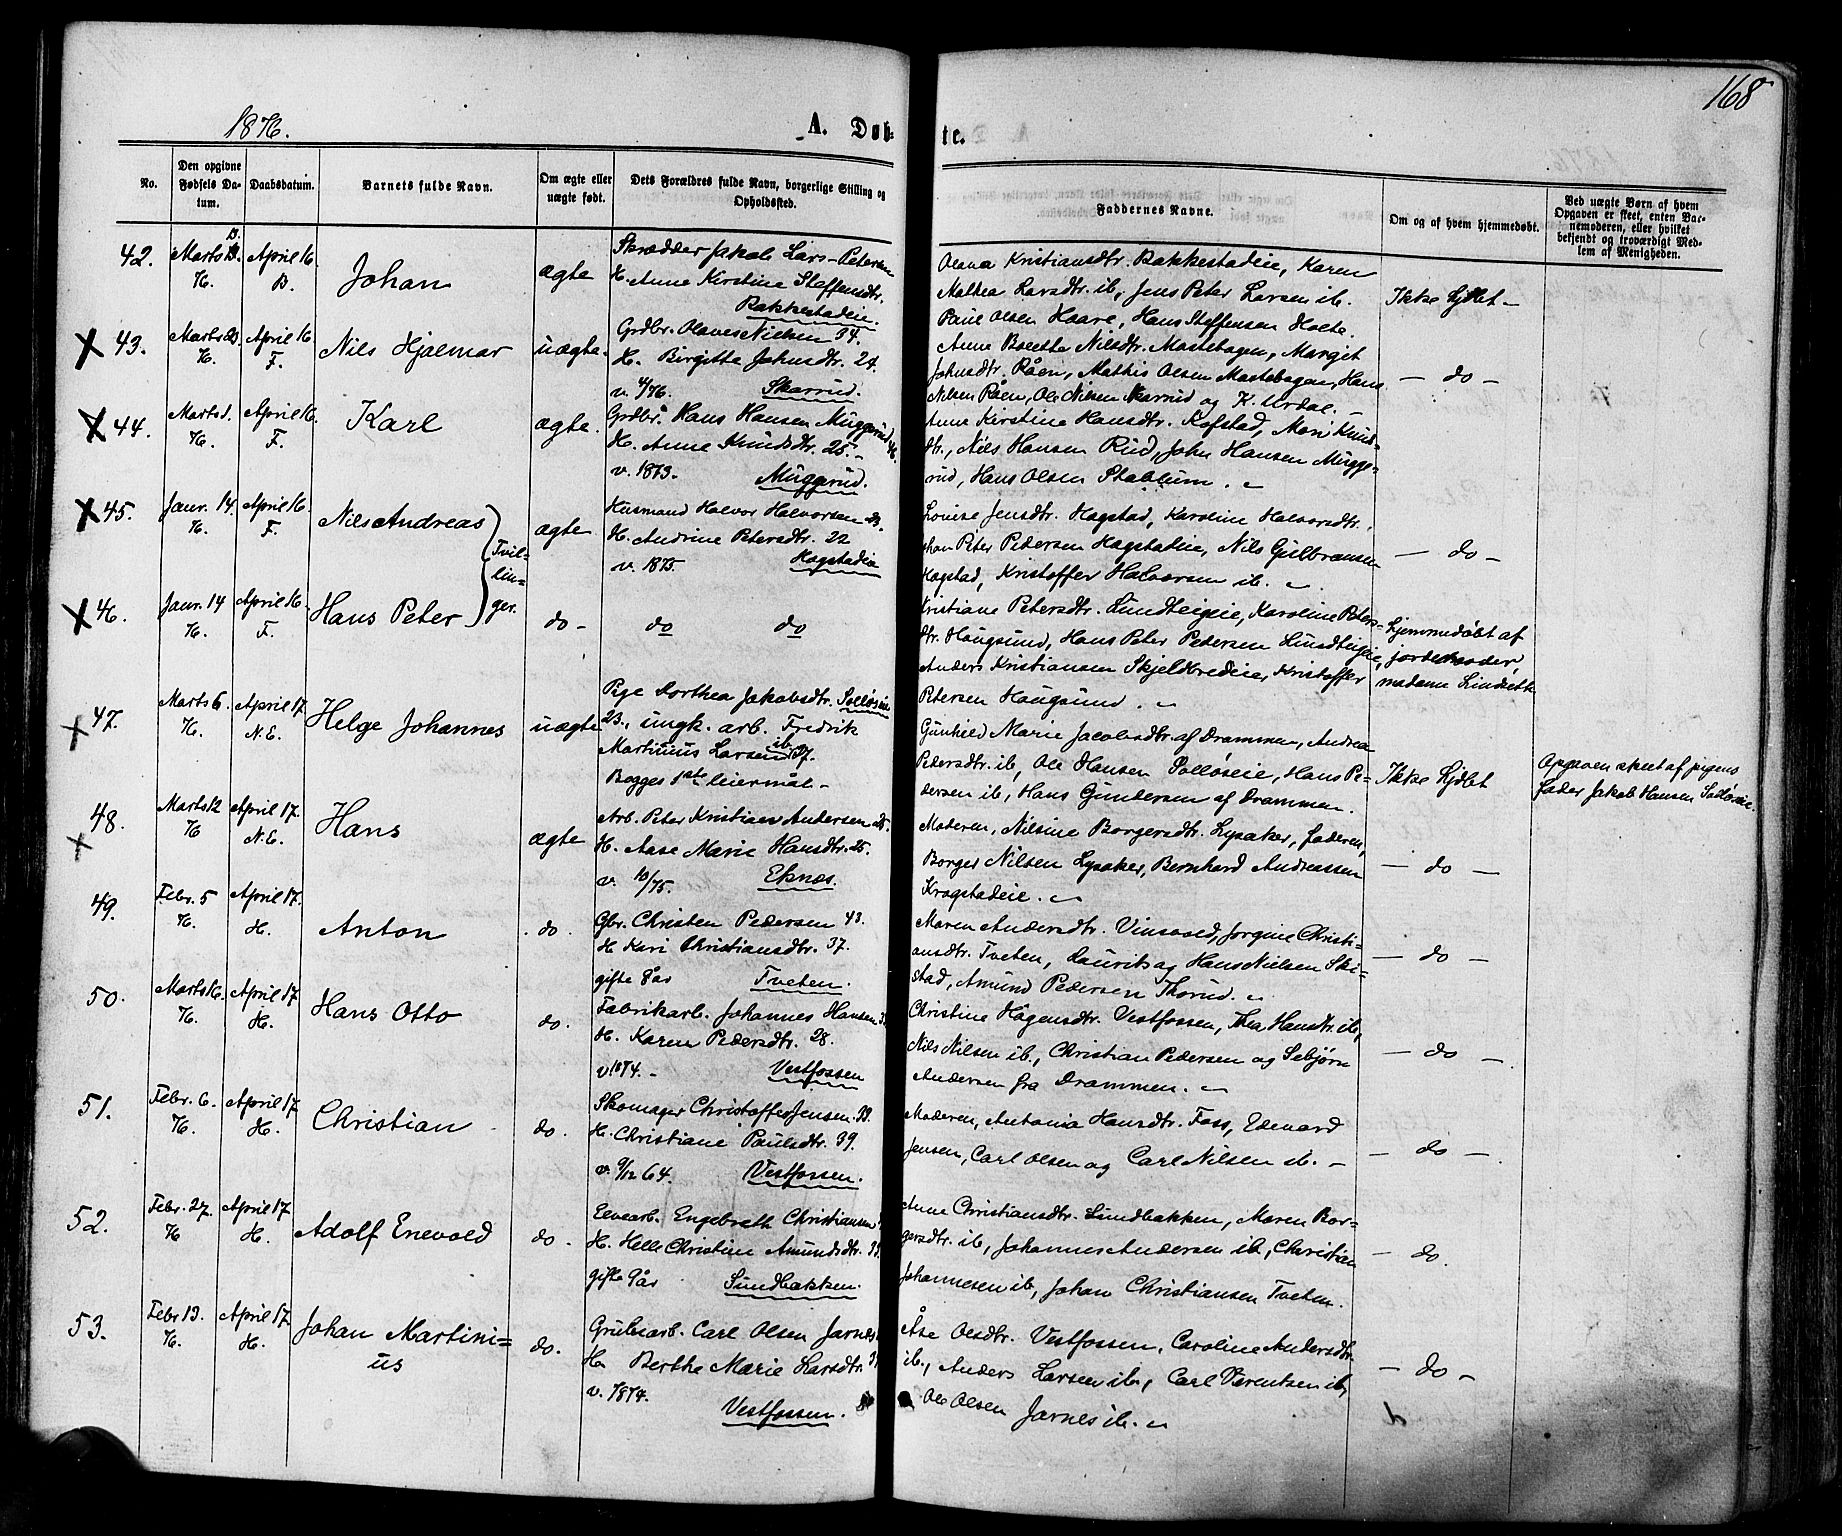 168
1876.
A. Døb-
te.
No.
Den opgivne
Fødsels Da-
tum.
Daabsdatum.
Barnets fulde Navn.
Om ægte eller
uægte født.
Dets Forældres fulde Navn, borgerlige Stilling og
Opholdssted.
Faddernes Navne.
Om og af hvem hjemmedøbt.
Ved uægte Børn af hvem
Opgaven er skeet, enten Bar-
nemoderen, eller hvilket
bekjendt og troværdigt Med-
lem af Menigheden.
42.
April 16.
B.
Johan
ægte
Skrædder Jakob Lars-Petersen
H. Anne Kirstine Staffensdtr.
Bakkestadeie.
Olava Kristiansdtr. Bakkestadeie, Karen
Mathea Larsdtr. ib., Jens Peter Larsen ib.
Paul Olsen Hoare, Hans Steffensen Holte.
Ikke Hjdbt -
x 43.
April 16
F.
Nils Hjalmar
uægte.
Grdbr. Olaves Nielsen 34.
H. Birgitte Johnsdtr. 24.
v. 4/76. Skarrud.
Anne Bolette Nilsdtr. Mastebogen, Margit
Johnsdtr. Råen, Mathis Olsen Mastebogen, Hans
Nilsen Råen, Ole Nilsen Skarrud og K. Urdal. -
- do -
x 44.
Marts 1.
H.
April 16.
F.
Karl
ægte.
Grdbr. Hans Hansen Muggerud
H. Anne Knudsdtr. 25.-
v. 1873. Muggrud.
Anne Kirstine Hansdtr. Kofstad, Mari Knuds-
dtr., Nils Hansen Rud, John Hansen Mugge-
rud, Hans Olsen Stablum.
x 45.
Janr. 14.
H.
April 16.
F.
Nils Andreas
Tvil-
lin-
ger.
ægte
Husmand Halvor Halvorsen
H. Andrine Petersdtr. 22
v. 1875. Hagstadeie
Louise Jensdtr. Hagstad, Karoline Halvorsdtr.
Johan Peter Pedersen Hagstadeie, Nils Gulbransen
Hagstad, Kristoffer Halvorsen ib.
- do -
x 46.
Janr. 14
H.
April 16.
F.
Hans Peter
do -
do do
Kristiane Petersdtr. Lundteigeie, Karoline Peters-
dtr. Hougsund, Hans Peter Pedersen Lundteigeie,
Anders Kristiansen Skjelbredeie, Kristoffer
Petersen Hougsund.
Hjemmedøbt af
jordemoder,
madame Lindseth
x 47.
Marts 6.
H.
April 17.
N.E.
Helge Johannes
uægte
Pige Dorthea Jakobsdtr. Solløseie
23., ungk. arb. Fredrik
Martinius Larsen ib. 27.
Begges 1ste leiermål -
Gunhild Marie Jacobsdtr. af Drammen, Andrea
Pedersdtr. ib., Ole Hansen Solløseie, Hans Pe-
dersen ib., Hans Gundersen af Drammen.
Ikke Hjdbt
Opgaven skeet af pigens
fader Jakob Hansen Solløseie.
x 48.
Marts 12
H
April 17.
N.E.
Hans
ægte
Arb. Peter Kristian Andersen 25.
H. Aase Marie Hansdtr. 25.
v. 10/75. Eknes.
Moderen, Nilsine Borgersdtr. Lysaker, faderen,
Borger Nilsen Lysaker, Bernhard Andreassen
Kragstadeie.
- do -
49.
Febr. 5
H.
April 17.
H.
Anton
do.
Gbr. Christen Pedersen 43.
H Kari Christiansdtr. 37.
gifte 8 år Tveten.
Maren Andersdtr. Vinsvold, Jorgine Christi-
ansdtr. Tveten, Laurits og Hans Nielsen Ski-
stad, Amund Pedersen Thorud.
- do -
50.
Marts 16.
H.
April 17
H.
Hans Otto
do.
Fabrikarb. Johannes Hansen
H. Karen Pedersdtr. 28.
v 1874. - Vestfossen
Christine Hågensdtr. Vestfossen, Thea Hansdtr. ib,
Nils Nilsen ib., Christian Pedersen og Sebjørn
Andersen fra Drammen.
- do -
51.
Febr. 6.
H.
April 17
H.
Christian
do.
Skomager Christoffer Jensen
H. Christiane Paulsdtr. 39.
v. 9/12 64. Vestfossen.
Moderen, Antonia Hansdtr. Foss, Edevard
Jensen, Carl Olsen og Carl Nilsen ib. -
- do -
52.
Febr. 27.
H
April 17.
H.
Adolf Enevold
do.
Elvearb. Engebreth Christiansen
H. Helle Christine Amundsdtr.
gifte 9 år Sundbakken.
Anne Christiansdtr. Sundbakken, Maren Bor-
gersdtr. ib., Johannes Andersen ib., Christian
Johannesen ib., Johan Christiansen Tveten.
- do.
53.
Febr 13.
H.
April 17
H.
Johan Martini-
us
do.
Grubearb. Carl Olsen Jarnes
H. Berthe Marie Larsdtr.
v. 1874.
Vestfossen.
Åse Olsdtr. Vestfossen, Caroline Andersdtr.
ib., Anders Larsen ib., Carl Berentsen ib,
Ole Olsen Jarnes ib.
- do -